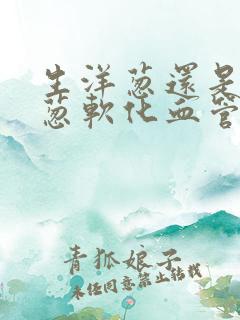 生洋葱還是
葱軟化血管
青狐娘子
未经同意禁止转载